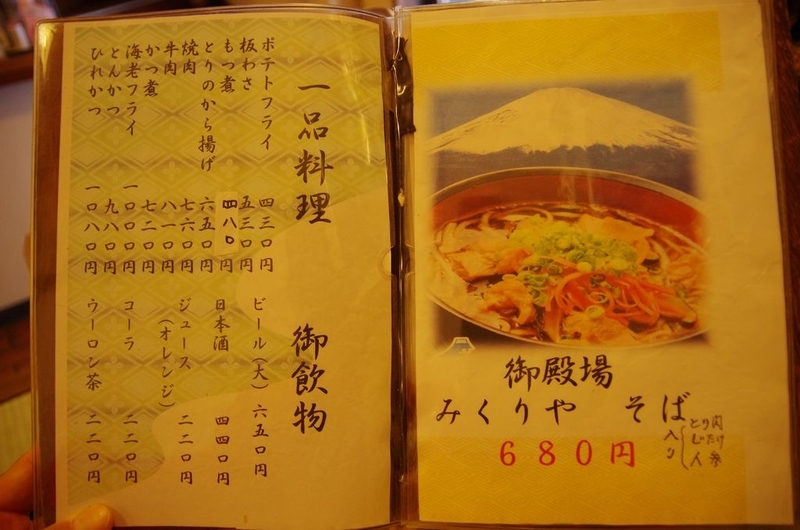 一品料理
ポテトフライ 四三〇円
板わさ 五三〇円
もつ煮 四八〇円
とりのから揚げ 六五〇円
焼肉 七六〇円
牛肉 八一〇円
かつ煮 七二〇円
海老フライ 一〇〇〇円
とんかつ 九八〇円
ひれかつ 一〇八〇円
御飲物
ビール(大) 六五〇円
日本酒 四四〇円
ジュース
(オレンジ) 二二〇円
コーラ 二二〇円
ウーロン茶 二二〇円
御殿場
みくりや そば
とり肉
人参
入り
680円